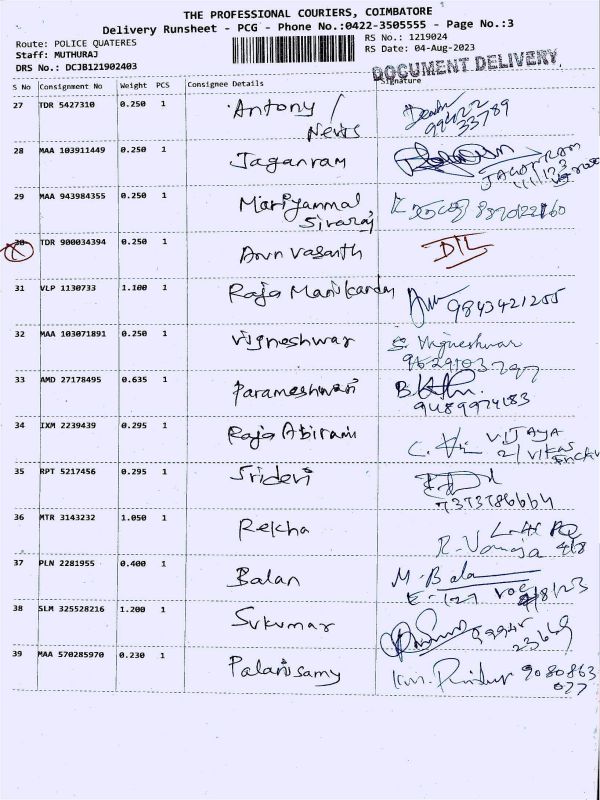 THE PROFESSIONAL COURIERS, COIMBATORE
Delivery Runsheet - PCG - Phone No.:0422-3505555 - Page No.:3
Route: POLICE QUATERES
RS No.: 1219024
Staff: MUTHURAJ
RS Date: 04-Aug-2023
DRS No.: DCJB121902403
DOCUMENT DELIVERY
S No Consignment No Weight PCS Consignee Details Signature
27 TDR 5427310 0.250 1 Antony / News 99422 33789
28 MAA 103911449 0.250 1 Jaganram JAGANRAM
29 MAA 943984355 0.250 1 Mariyammal Sivaraj
30 TDR 900034394 0.250 1 Arun Vasanth DIL
31 VLP 1130733 1.100 1 Raja Manikandan 9843421255
32 MAA 103071891 0.250 1 Vigneshwar S. Vigneshwar 9629103797
33 AMD 27178495 0.635 1 Parameshwari 9489974183
34 IXM 2239439 0.295 1 Raja Abirami VIJAYA 21 VIKAS
35 RPT 5217456 0.295 1 Sridevi 7373786664
36 MTR 3143232 1.050 1 Rekha R. Vanaja
37 PLN 2281955 0.400 1 Balan M. Bala E-127
38 SLM 325528216 1.200 1 Sukumar 99945 23669
39 MAA 570285970 0.230 1 Palanisamy 9080863 077